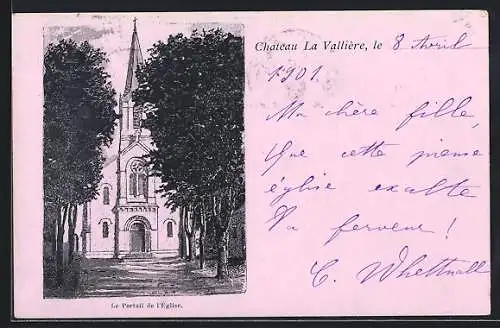 Chateau La Vallière, le 8 Avril
1901.
Ma chère fille,
Que cette pieuse
église exalte
Ta ferveur !
C. Whettnall
Le Portail de l'Église.